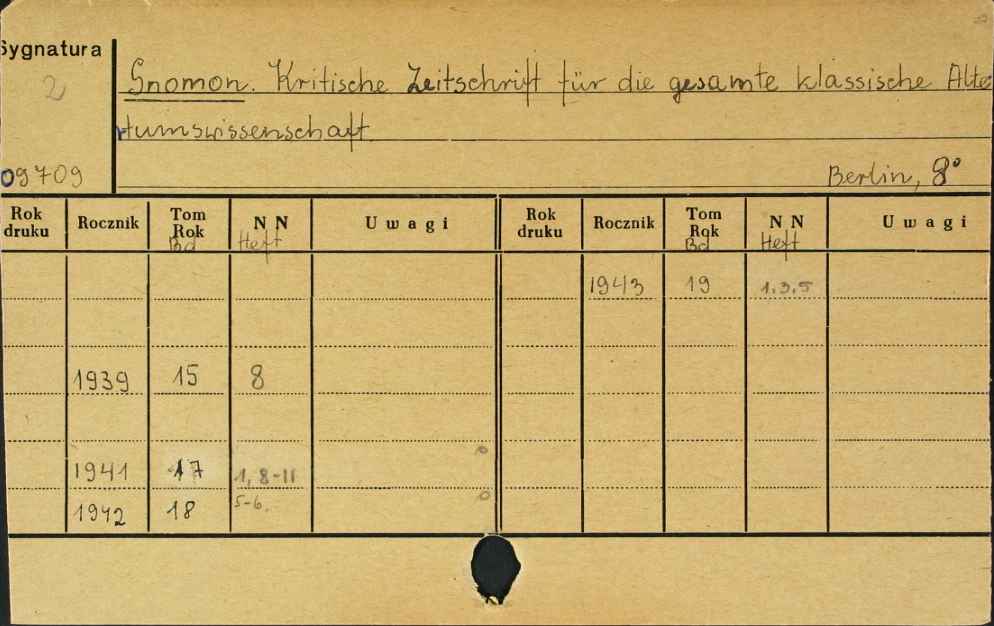 Sygnatura
2
Gnomon. Kritische Zeitschrift für die gesamte klassische Alter
tumswissenschaft
09709
Berlin, 8°
Rok druku Rocznik Tom Rok Bd NN Heft Uwagi Rok druku Rocznik Tom Rok Bd NN Heft Uwagi
1943 19 1.3.5
1939 15 8
1941 17 1, 8-11
1942 18 5-6.